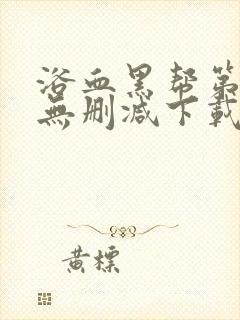 浴血黑帮第
無删减下載
黄標